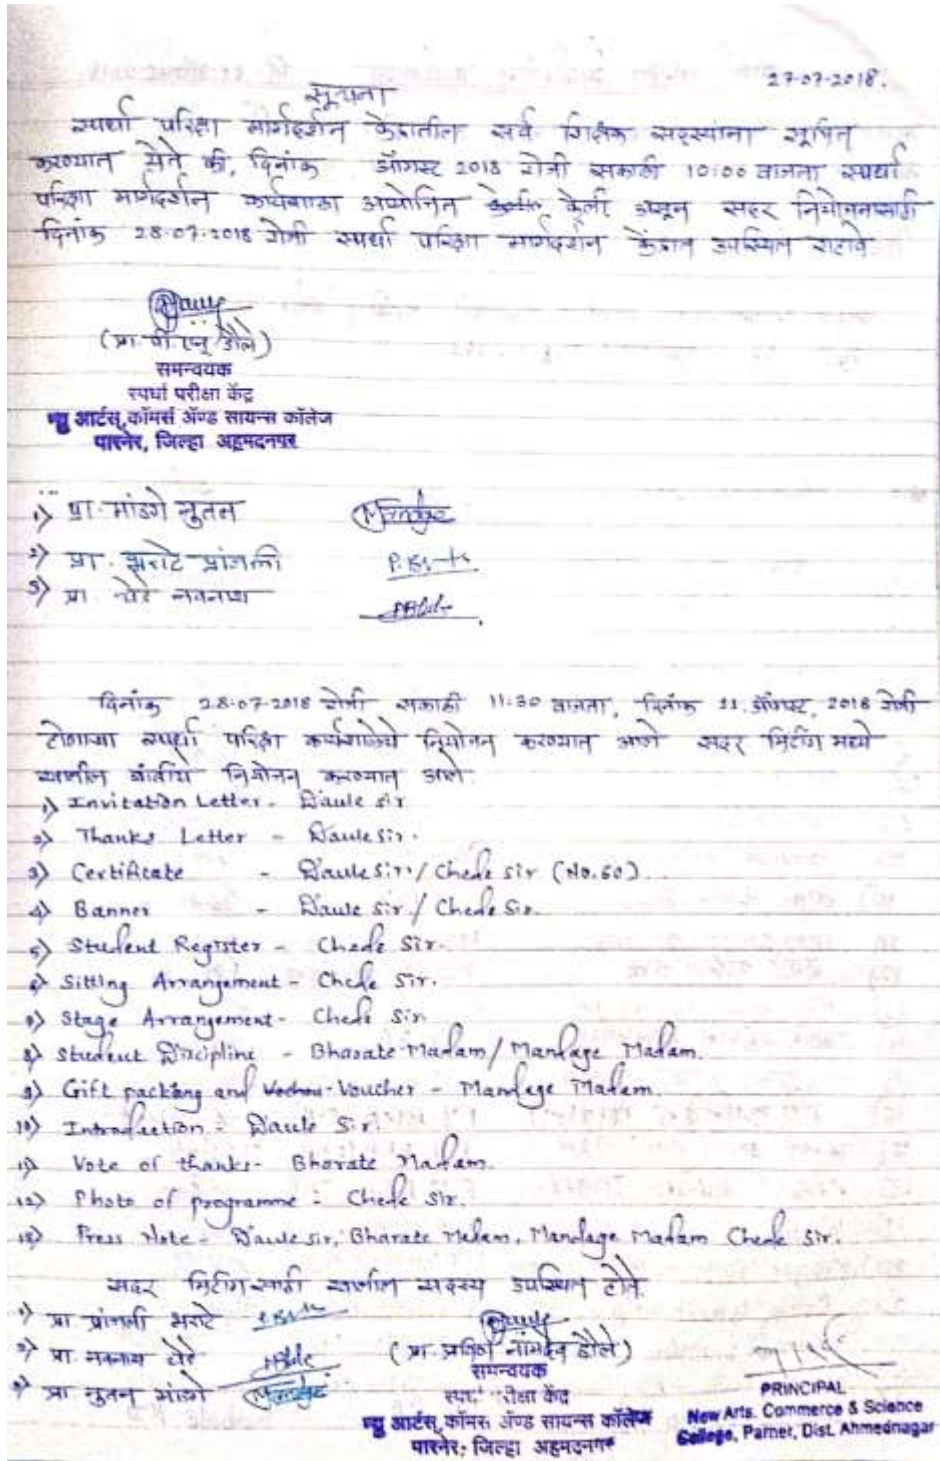 27-07-2018.
सूचना
स्पर्धा परिक्षा मार्गदर्शन केंद्रातील सर्व शिक्षक सदस्यांना सूचित
करण्यात येते की, दिनांक ऑगस्ट 2018 रोजी सकाळी 10:00 वाजता स्पर्धा
परिक्षा मार्गदर्शन कार्यशाळा आयोजित केली असून सदर नियोजनासाठी
दिनांक 28.07.2018 रोजी स्पर्धा परिक्षा मार्गदर्शन केंद्रात उपस्थित रहावे.
(प्रा. पी. एन. डौले)
समन्वयक
स्पर्धा परीक्षा केंद्र
न्यु आर्टस्, कॉमर्स अ‍ॅण्ड सायन्स कॉलेज
पारनेर, जिल्हा अहमदनगर
1) प्रा. मांडगे नुतन
2) प्रा. भराटे प्रांजली
3) प्रा. चेडे नवनाथ
दिनांक 28-07-2018 रोजी सकाळी 11:30 वाजता, दिनांक 11 ऑगस्ट, 2018 रोजी
होणाऱ्या स्पर्धा परिक्षा कार्यशाळेचे नियोजन करण्यात आले सदर मिटींग मध्ये
खालील बाबींचे नियोजन करण्यात आले.
1) Invitation Letter - Daule sir
2) Thanks Letter - Daule sir.
3) Certificate - Daule sir / Chede sir (No. 60)
4) Banner - Daule Sir / Chede Sir.
5) Student Register - Chede Sir.
6) Sitting Arrangement - Chede Sir.
7) Stage Arrangement - Chede Sir
8) Student Discipline - Bharate Madam / Mandage Madam.
9) Gift packing and Voucher - Mandage Madam.
10) Introduction : Daule Sir.
11) Vote of thanks - Bharate Madam.
12) Photo of programme : Chede Sir.
13) Press Note - Daule sir, Bharate Madam, Mandage Madam Chede Sir.
सदर मिटींगसाठी खालील सदस्य उपस्थित होते.
1) प्रा प्रांजली भराटे
2) प्रा. नवनाथ चेडे
3) प्रा नुतन मांडगे
(प्रा. प्रविण नामदेव डौले)
समन्वयक
स्पर्धा परीक्षा केंद्र
न्यु आर्टस्, कॉमर्स अ‍ॅण्ड सायन्स कॉलेज
पारनेर, जिल्हा अहमदनगर
PRINCIPAL
New Arts, Commerce & Science
College, Parner, Dist. Ahmednagar